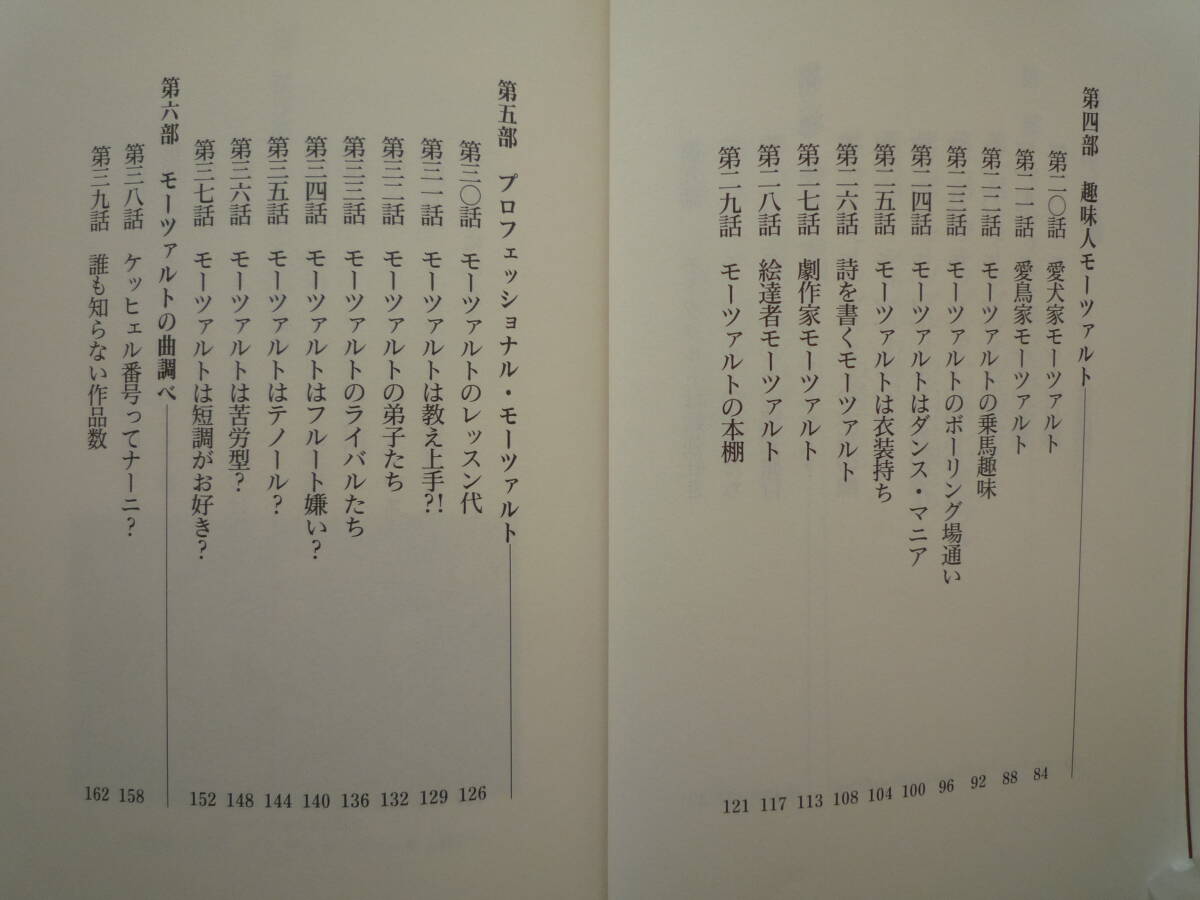 第四部　趣味人モーツァルト
第二〇話　愛犬家モーツァルト　84
第二一話　愛鳥家モーツァルト　88
第二二話　モーツァルトの乗馬趣味　92
第二三話　モーツァルトのボーリング場通い　96
第二四話　モーツァルトはダンス・マニア　100
第二五話　モーツァルトは衣装持ち　104
第二六話　詩を書くモーツァルト　108
第二七話　劇作家モーツァルト　113
第二八話　絵達者モーツァルト　117
第二九話　モーツァルトの本棚　121
第五部　プロフェッショナル・モーツァルト
第三〇話　モーツァルトのレッスン代　126
第三一話　モーツァルトは教え上手?!　129
第三二話　モーツァルトの弟子たち　132
第三三話　モーツァルトのライバルたち　136
第三四話　モーツァルトはフルート嫌い?　140
第三五話　モーツァルトはテノール?　144
第三六話　モーツァルトは苦労型?　148
第三七話　モーツァルトは短調がお好き?　152
第六部　モーツァルトの曲調べ
第三八話　ケッヒェル番号ってナーニ?　158
第三九話　誰も知らない作品数　162